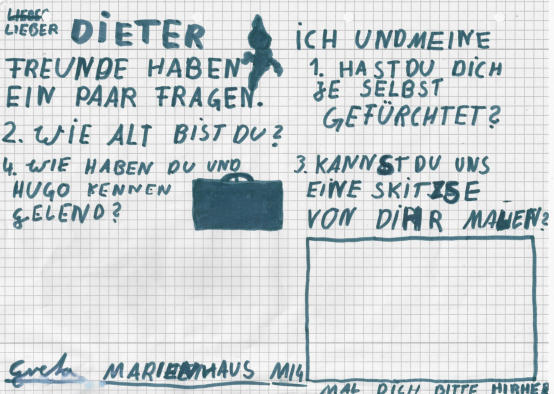 LIEBER
LIEBER DIETER ICH UND MEINE
FREUNDE HABEN
EIN PAAR FRAGEN.
1. HAST DU DICH
JE SELBST
GEFÜRCHTET?
2. WIE ALT BIST DU?
3. KANNST DU UNS
EINE SKITZSE
VON DIHR MALEN?
4. WIE HABEN DU UND
HUGO KENNEN
GELEND?
Greta MARIENHAUS M14
MAL DICH BITTE HIRHER